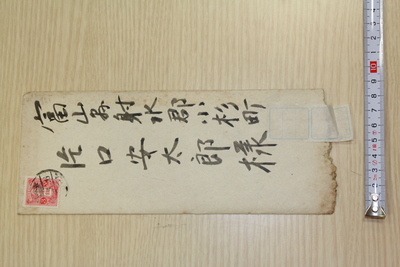 富山県射水郡小杉町
片口安太郎様